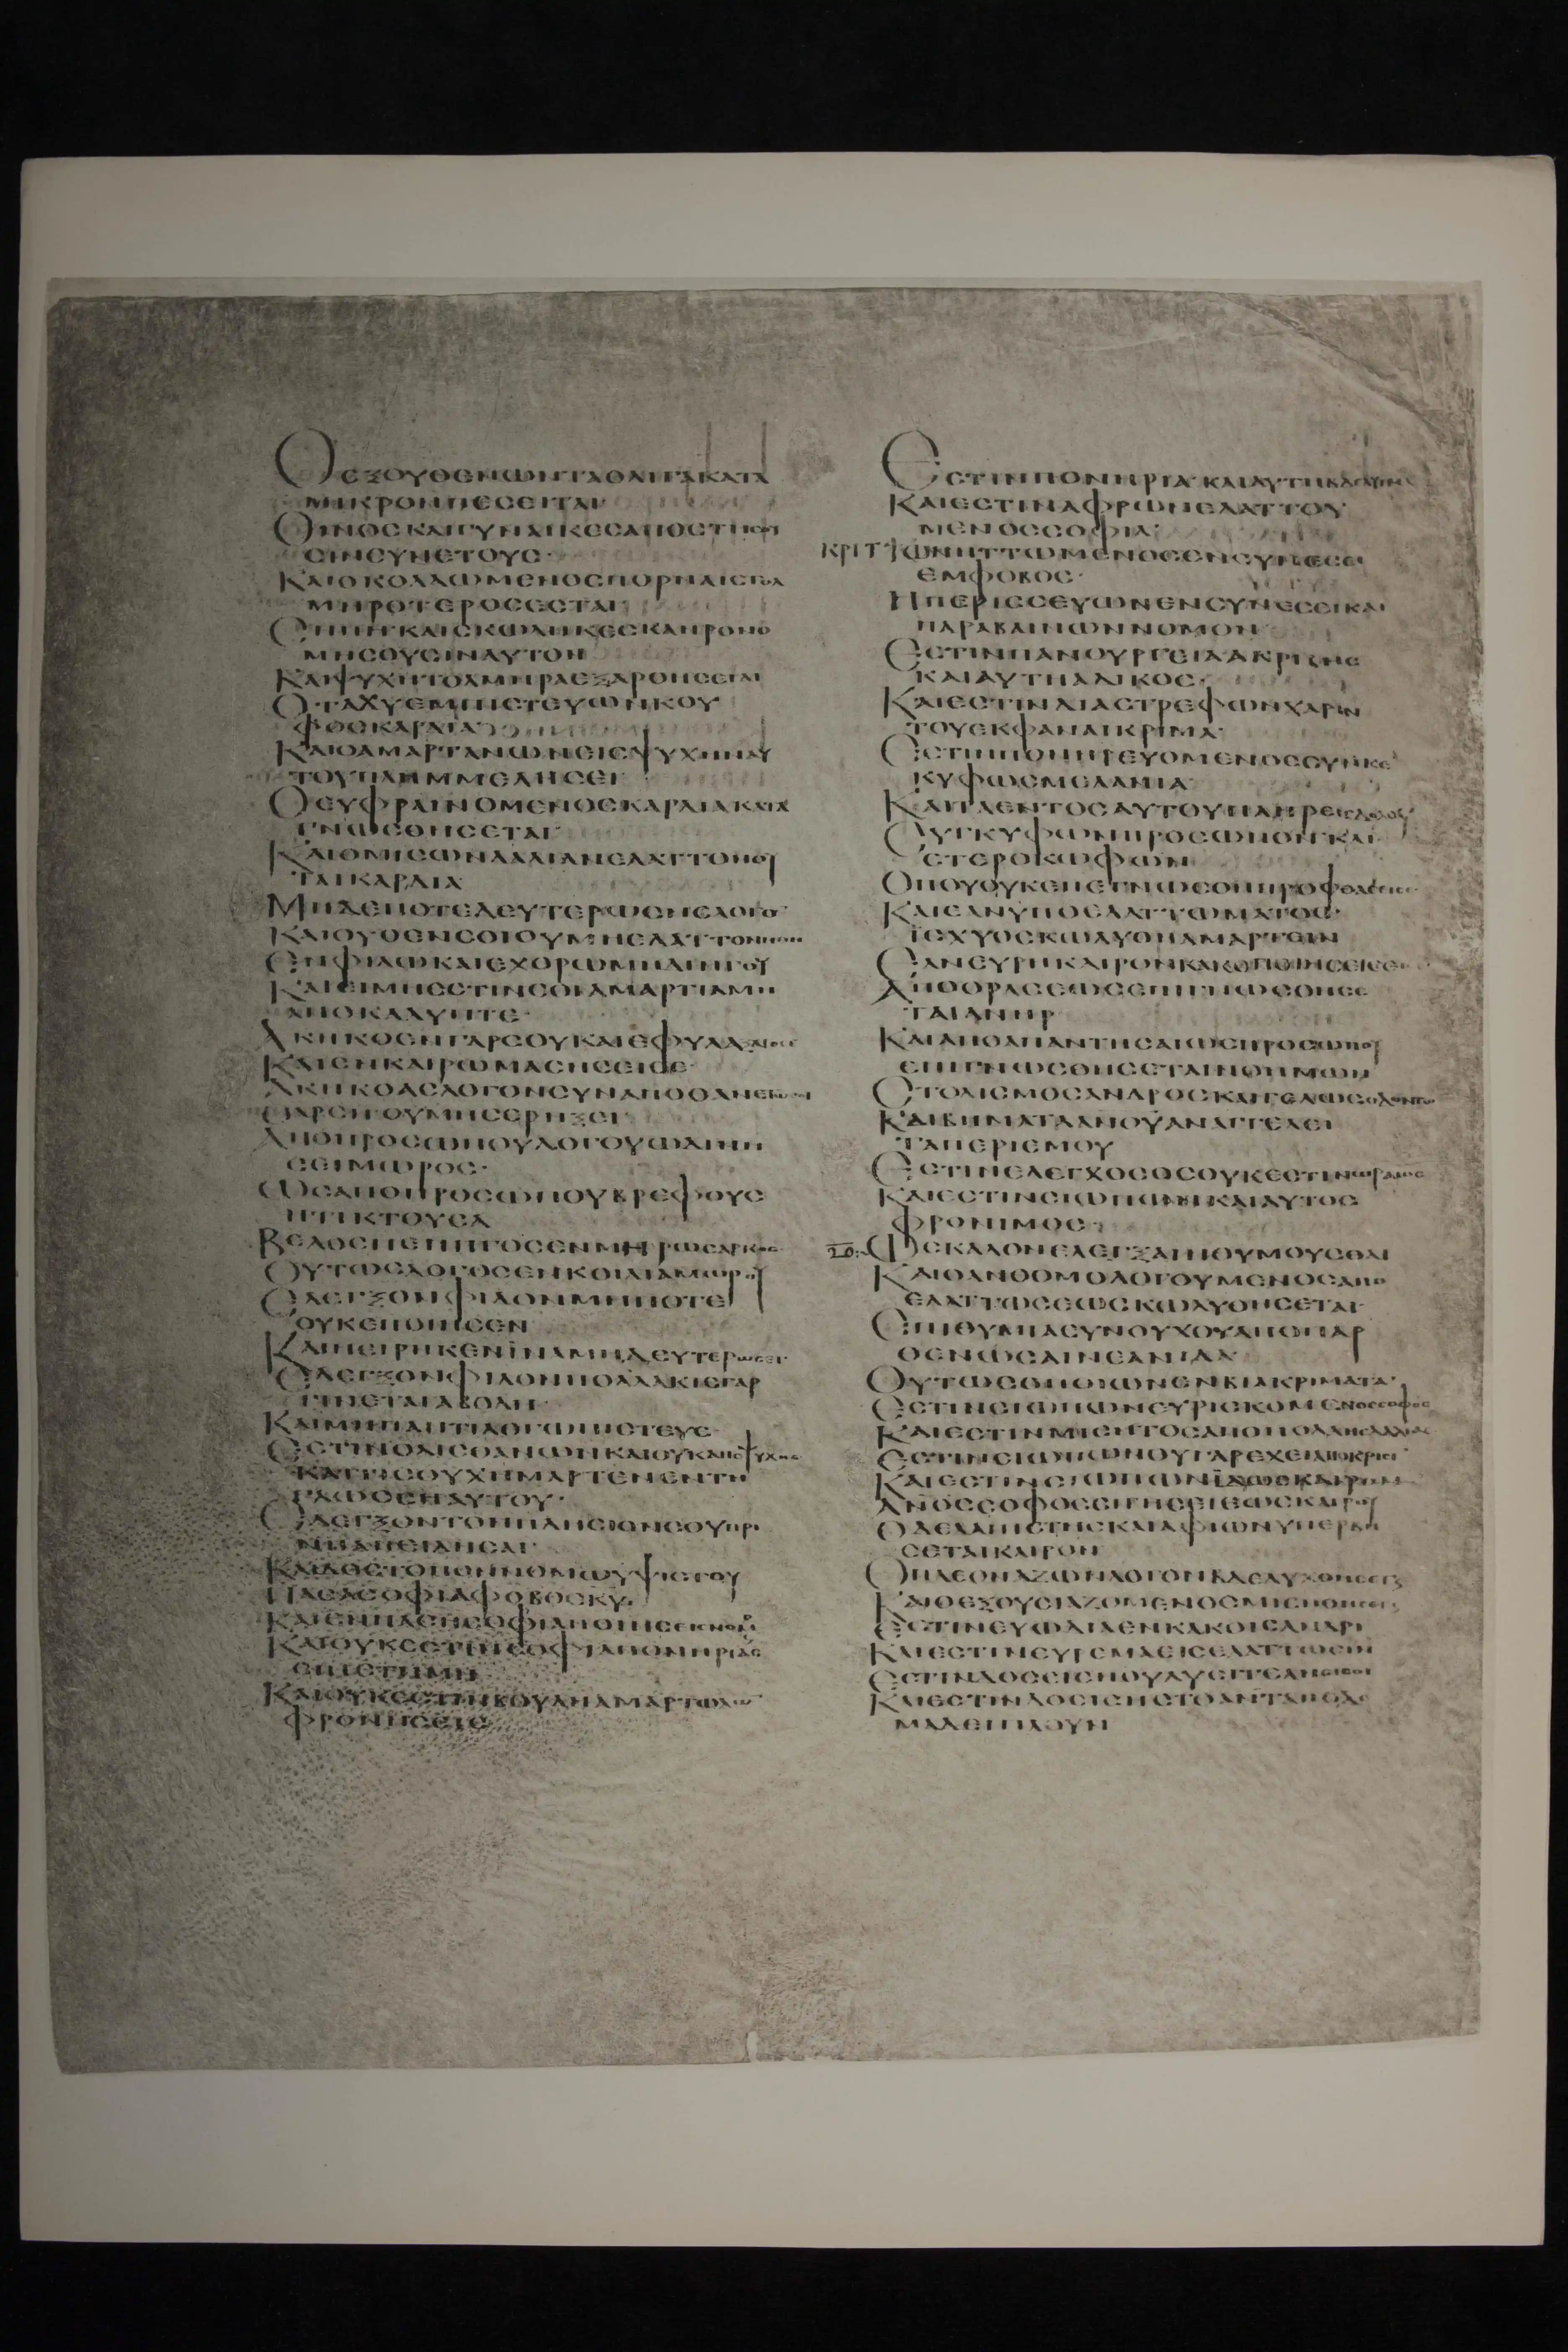 ΟΕΞΟΥΘΕΝΩΝΤΑΟΛΙΓΑΚΑΤΑ
ΜΙΚΡΟΝΠΕΣΕΙΤΑΙ
ΟΙΝΟΣΚΑΙΓΥΝΑΙΚΕΣΑΠΟΣΤΗΣΟΥ
ΣΙΝΣΥΝΕΤΟΥΣ·
ΚΑΙΟΚΟΛΛΩΜΕΝΟΣΠΟΡΝΑΙΣΤΟΛ
ΜΗΡΟΤΕΡΟΣΕΣΤΑΙ
ΣΗΠΗΚΑΙΣΚΩΛΗΚΕΣΚΛΗΡΟΝΟ
ΜΗΣΟΥΣΙΝΑΥΤΟΝ
ΚΑΙΨΥΧΗΤΟΛΜΗΡΑΕΞΑΡΘΗΣΕΤΑΙ
ΟΤΑΧΥΕΜΠΙΣΤΕΥΩΝΚΟΥ
ΦΟΣΚΑΡΔΙΑ
ΚΑΙΟΑΜΑΡΤΑΝΩΝΕΙΣΨΥΧΗΝΑΥ
ΤΟΥΠΛΗΜΜΕΛΗΣΕΙ
ΟΕΥΦΡΑΙΝΟΜΕΝΟΣΚΑΡΔΙΑΚΑΤΑ
ΓΝΩΣΘΗΣΕΤΑΙ
ΚΑΙΟΜΙΣΩΝΛΑΛΙΑΝΕΛΑΤΤΟΝΟΥ
ΤΑΙΚΑΡΔΙΑ
ΜΗΔΕΠΟΤΕΔΕΥΤΕΡΩΣΗΣΛΟΓΟ
ΚΑΙΟΥΘΕΝΣΟΙΟΥΜΗΕΛΑΤΤΟΝΩΘΗ
ΕΝΦΙΛΩΚΑΙΕΧΘΡΩΜΗΔΙΗΓΟΥ
ΚΑΙΕΙΜΗΕΣΤΙΝΣΟΙΑΜΑΡΤΙΑΜΗ
ΑΠΟΚΑΛΥΠΤΕ·
ΑΚΗΚΟΕΝΓΑΡΣΟΥΚΑΙΕΦΥΛΑΞΑΤΟΣΕ
ΚΑΙΕΝΚΑΙΡΩΜΙΣΗΣΕΙΣΕ
ΑΚΗΚΟΑΣΛΟΓΟΝΣΥΝΑΠΟΘΑΝΕΤΩΣΟΙ
ΘΑΡΣΕΙΟΥΜΗΣΕΡΗΞΕΙ
ΑΠΟΠΡΟΣΩΠΟΥΛΟΓΟΥΩΔΙΝΗ
ΣΕΙΜΩΡΟΣ·
ΩΣΑΠΟΠΡΟΣΩΠΟΥΒΡΕΦΟΥΣ
ΗΤΙΚΤΟΥΣΑ
ΒΕΛΟΣΠΕΠΗΓΟΣΕΝΜΗΡΩΣΑΡΚΟΣ
ΟΥΤΩΣΛΟΓΟΣΕΝΚΟΙΛΙΑΜΩΡΟΥ
ΕΛΕΓΞΟΝΦΙΛΟΝΜΗΠΟΤΕ
ΟΥΚΕΠΟΙΗΣΕΝ
ΚΑΙΠΕΙΡΗΚΕΝΪΝΑΜΗΔΕΥΤΕΡΩΣΕΙ
ΕΛΕΓΞΟΝΦΙΛΟΝΠΟΛΛΑΚΙΣΓΑΡ
ΓΙΝΕΤΑΙΔΙΑΒΟΛΗ
ΚΑΙΜΗΠΑΝΤΙΛΟΓΩΠΙΣΤΕΥΕ
ΕΣΤΙΝΟΛΙΣΘΑΝΩΝΚΑΙΟΥΚΑΠΟΨΥΧΗΣ
ΚΑΙΤΙΣΟΥΧΗΜΑΡΤΕΝΕΝΤΗ
ΓΛΩΣΣΗΑΥΤΟΥ·
ΕΛΕΓΞΟΝΤΟΝΠΛΗΣΙΟΝΣΟΥΠΡΙ
ΝΗΑΠΕΙΛΗΣΑΙ
ΚΑΙΔΟΣΤΟΠΟΝΝΟΜΩΥΨΙΣΤΟΥ
ΠΑΣΑΣΟΦΙΑΦΟΒΟΣΚΥ
ΚΑΙΕΝΠΑΣΗΣΟΦΙΑΠΟΙΗΣΕΙΣΝΟΜΟΥ
ΚΑΙΟΥΚΕΣΤΙΝΣΟΦΙΑΠΟΝΗΡΙΑΣ
ΕΠΙΣΤΗΜΗ
ΚΑΙΟΥΚΕΣΤΙΝΒΟΥΛΗΑΜΑΡΤΩΛΩ
ΦΡΟΝΗΣΕΙΣ
ΕΣΤΙΝΠΟΝΗΡΙΑΚΑΙΑΥΤΗΒΔΕΛΥΓΜΑ
ΚΑΙΕΣΤΙΝΑΦΡΩΝΕΛΑΤΤΟΥ
ΜΕΝΟΣΣΟΦΙΑ
ΚΡΙΤΤΩΝΗΤΤΩΜΕΝΟΣΕΝΣΥΝΕΣΕΙ
ΕΜΦΟΒΟΣ·
ΗΠΕΡΙΣΣΕΥΩΝΕΝΣΥΝΕΣΕΙΚΑΙ
ΠΑΡΑΒΑΙΝΩΝΝΟΜΟΝ
ΕΣΤΙΝΠΑΝΟΥΡΓΕΙΑΑΚΡΙΒΗΣ
ΚΑΙΑΥΤΗΑΔΙΚΟΣ·
ΚΑΙΕΣΤΙΝΔΙΑΣΤΡΕΦΩΝΧΑΡΙΝ
ΤΟΥΕΚΦΑΝΑΙΚΡΙΜΑ·
ΕΣΤΙΝΠΟΝΗΡΕΥΟΜΕΝΟΣΣΥΝΚΕ
ΚΥΦΩΣΜΕΛΑΝΙΑ
ΚΑΙΤΑΕΝΤΟΣΑΥΤΟΥΠΛΗΡΕΙΣΔΟΛΟΥ
ΣΥΓΚΥΦΩΝΠΡΟΣΩΠΟΝΚΑΙ
ΕΤΕΡΟΚΩΦΩΝ
ΟΠΟΥΟΥΚΕΠΕΓΝΩΣΘΗΠΡΟΦΘΑΣΕΙΣΕ
ΚΑΙΕΑΝΥΠΟΕΛΑΤΤΩΜΑΤΟΣ
ΪΣΧΥΟΣΚΩΛΥΘΗΑΜΑΡΤΕΙΝ
ΕΑΝΕΥΡΗΚΑΙΡΟΝΚΑΚΟΠΟΙΗΣΕΙΣΕ
ΑΠΟΟΡΑΣΕΩΣΕΠΙΓΝΩΣΘΗΣΕ
ΤΑΙΑΝΗΡ
ΚΑΙΑΠΟΑΠΑΝΤΗΣΑΙΩΣΠΡΟΣΩΠΟΥ
ΕΠΙΓΝΩΣΘΗΣΕΤΑΙΝΟΗΜΩΝ
ΣΤΟΛΙΣΜΟΣΑΝΔΡΟΣΚΑΙΓΕΛΩΣΟΔΟΝΤΩ
ΚΑΙΒΗΜΑΤΑΑΝΟΥΑΝΑΓΓΕΛΕΙ
ΤΑΠΕΡΙΣΜΟΥ
ΕΣΤΙΝΕΛΕΓΧΟΣΟΣΟΥΚΕΣΤΙΝΩΡΑΙΟΣ
ΚΑΙΕΣΤΙΝΣΙΩΠΩΝΚΑΙΑΥΤΟΣ
ΦΡΟΝΙΜΟΣ·
ΩΣΚΑΛΟΝΕΛΕΓΞΑΙΗΘΥΜΟΥΣΘΑΙ
ΚΑΙΟΑΝΘΟΜΟΛΟΓΟΥΜΕΝΟΣΑΠΟ
ΕΛΑΤΤΩΣΕΩΣΚΩΛΥΘΗΣΕΤΑΙ
ΕΠΙΘΥΜΙΑΕΥΝΟΥΧΟΥΑΠΟΠΑΡ
ΘΕΝΩΣΑΙΝΕΑΝΙΔΑ
ΟΥΤΩΣΟΠΟΙΩΝΕΝΒΙΑΚΡΙΜΑΤΑ
ΕΣΤΙΝΣΙΩΠΩΝΕΥΡΙΣΚΟΜΕΝΟΣΣΟΦΟΣ
ΚΑΙΕΣΤΙΝΜΙΣΗΤΟΣΑΠΟΠΟΛΛΗΣΛΑΛΙΑΣ
ΕΣΤΙΝΣΙΩΠΩΝΟΥΓΑΡΕΧΕΙΑΠΟΚΡΙΣΙ
ΚΑΙΕΣΤΙΝΣΙΩΠΩΝΪΔΩΣΚΑΙΡΟΝ
ΑΝΟΣΣΟΦΟΣΣΙΓΗΣΕΙΕΩΣΚΑΙΡΟΥ
ΟΔΕΛΑΠΙΣΤΗΣΚΑΙΑΦΡΩΝΥΠΕΡΒΗ
ΣΕΤΑΙΚΑΙΡΟΝ
ΟΠΛΕΟΝΑΖΩΝΛΟΓΟΝΒΔΕΛΥΧΘΗΣΕΤΑΙ
ΚΑΙΟΕΞΟΥΣΙΑΖΟΜΕΝΟΣΜΙΣΗΘΗΣΕΤΑΙ
ΕΣΤΙΝΕΥΟΔΙΑΕΝΚΑΚΟΙΣΑΝΔΡΙ
ΚΑΙΕΣΤΙΝΕΥΡΕΜΑΕΙΣΕΛΑΤΤΩΣΙΝ
ΕΣΤΙΝΔΟΣΕΙΣΗΟΥΛΥΣΙΤΕΛΗΣΕΙΣΟΙ
ΚΑΙΕΣΤΙΝΔΟΣΙΣΗΣΤΟΑΝΤΑΠΟΔΟ